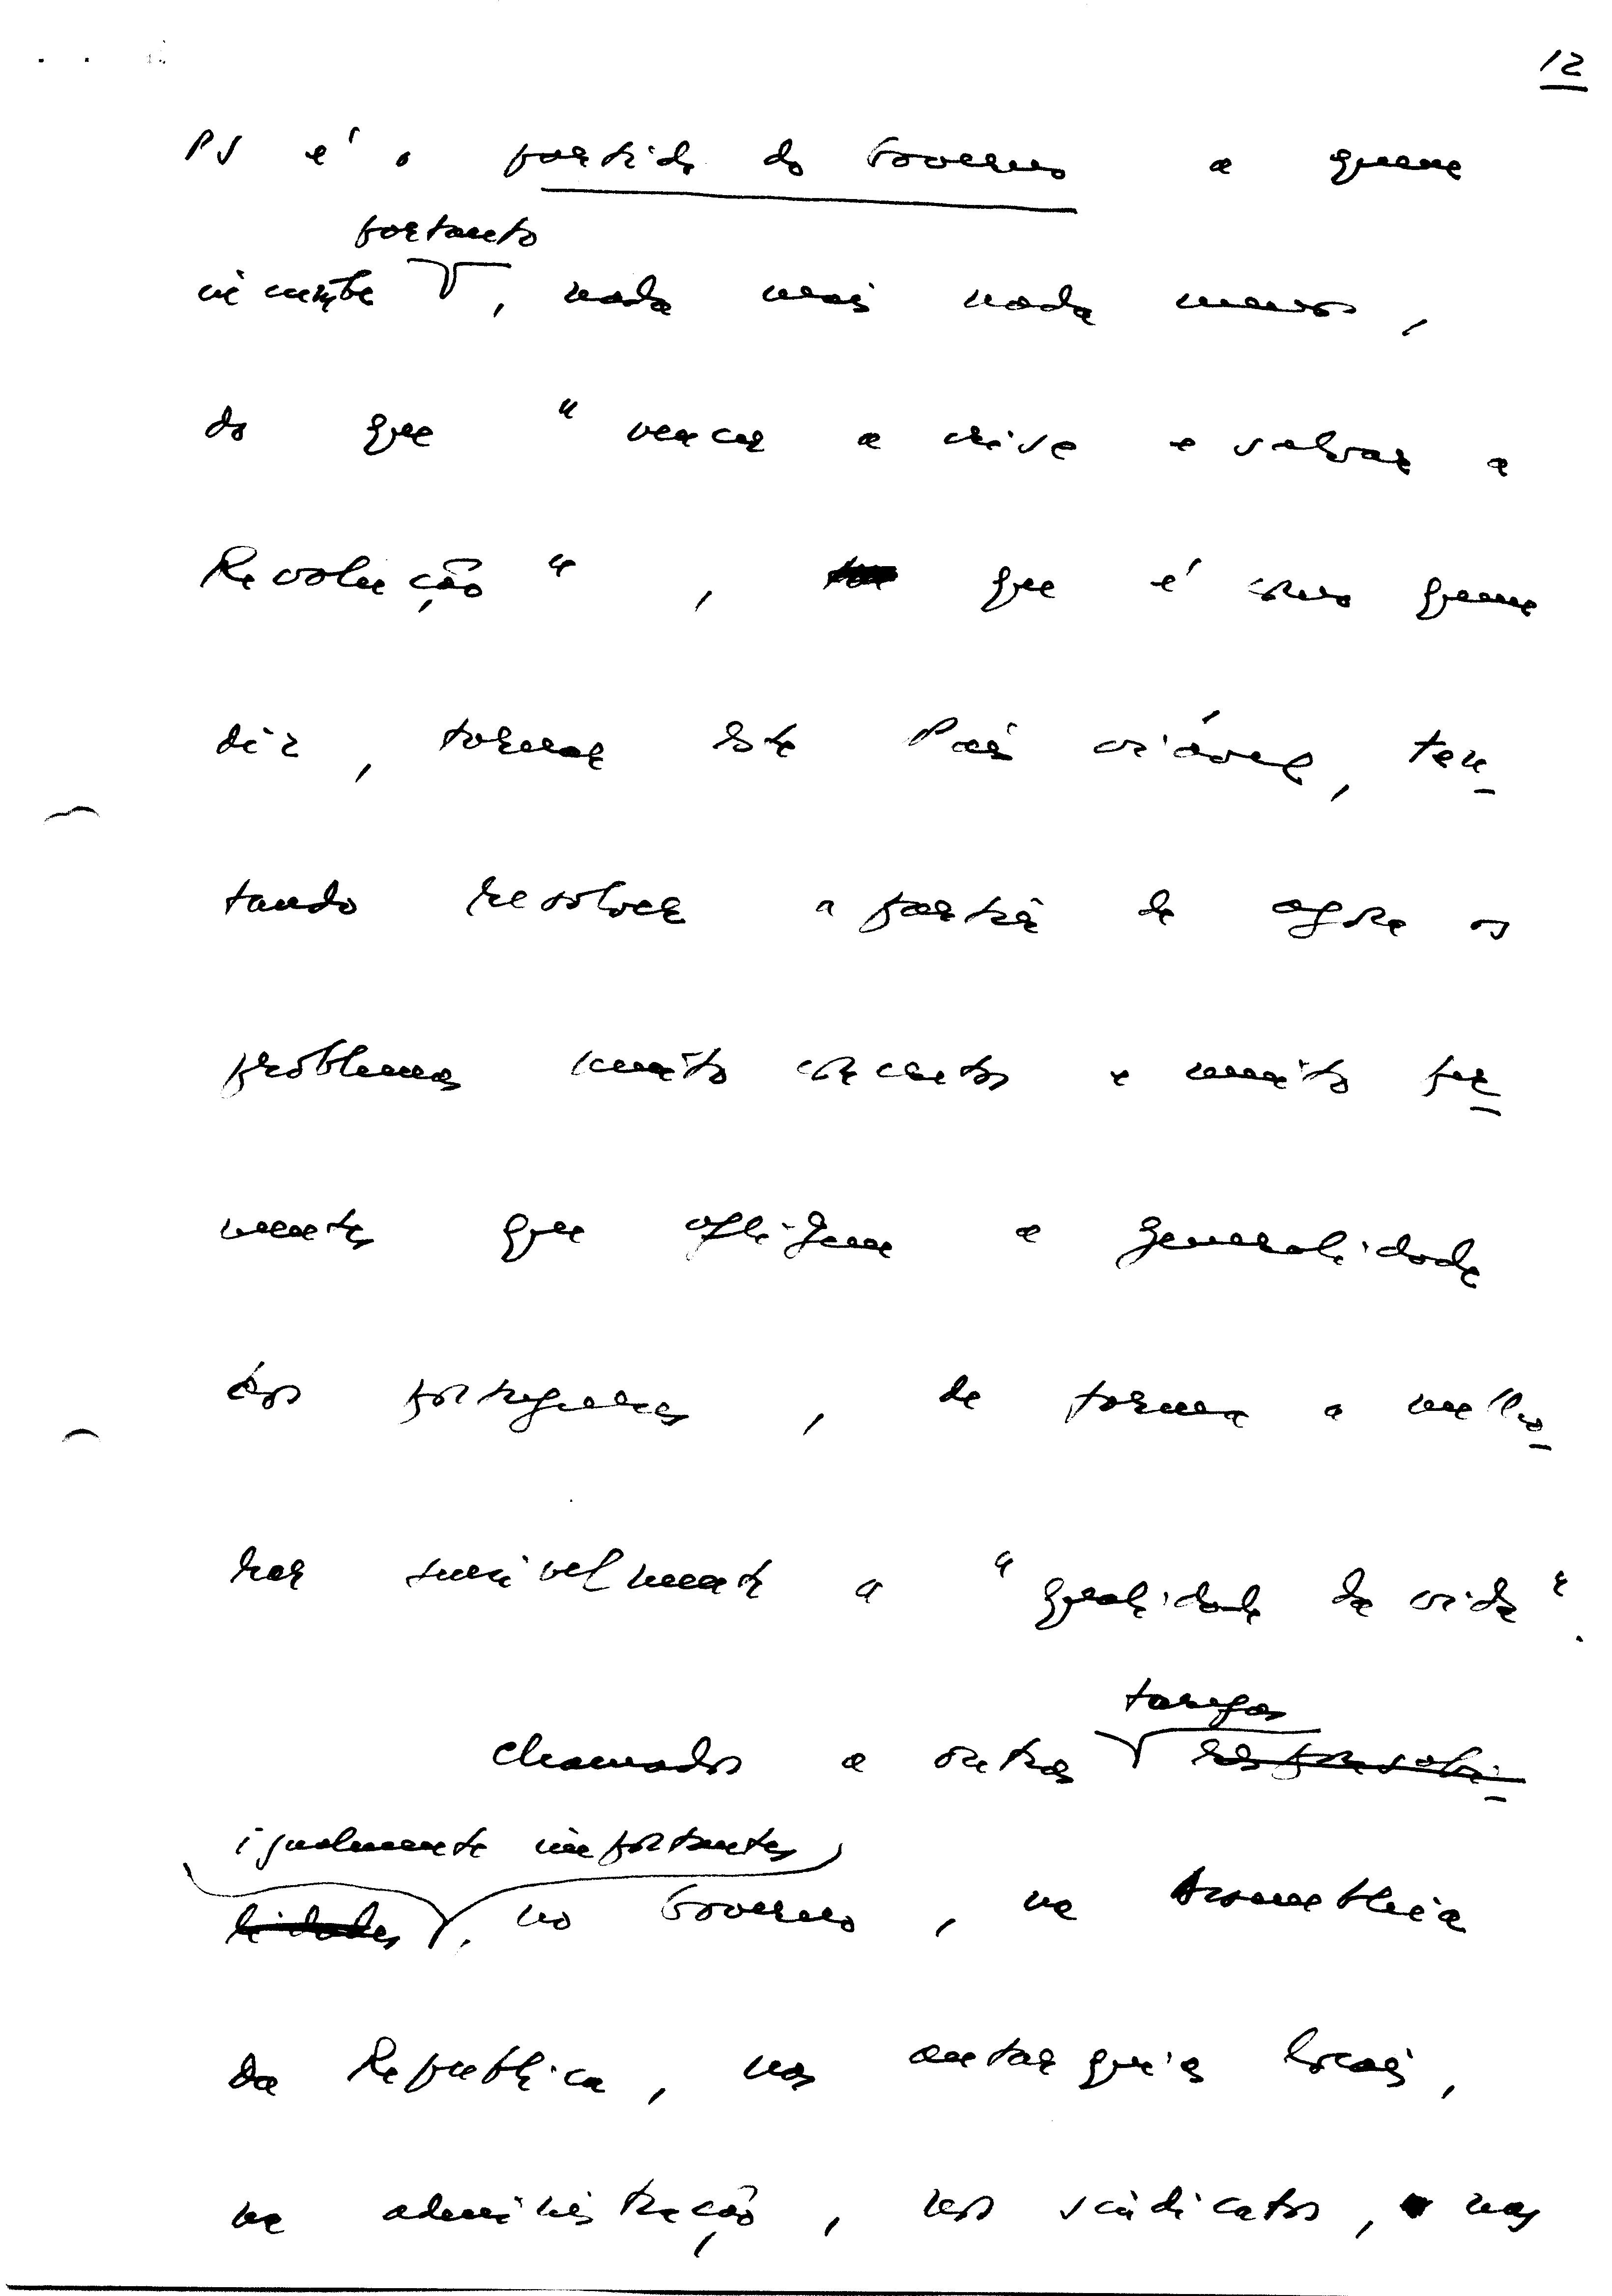 12
PS é o partido do Governo a quem
portanto
incumbe , nada mais nada menos,
do que "vencer a crise e salvar a
Revolução", que é como quem
diz, tornar este País viável, ten-
tando resolver a partir de agora os
problemas muito concretos e muito per-
mentes que afligem a generalidade
dos portugueses, de forma a melho-
rar sensivelmente a "qualidade de vida".
tarefas
Chamados a outras responsabi-
igualmente importantes
lidades, no Governo, na Assembleia
da República, nas autarquias locais,
na administração, nos sindicatos, nas